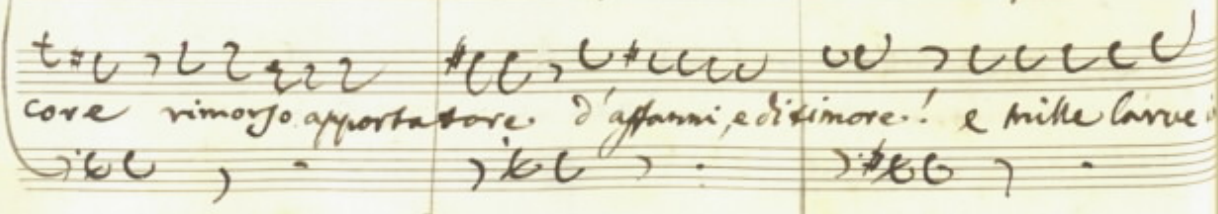 core rimorso apportatore. d'affanni, e di timore! e mille larve